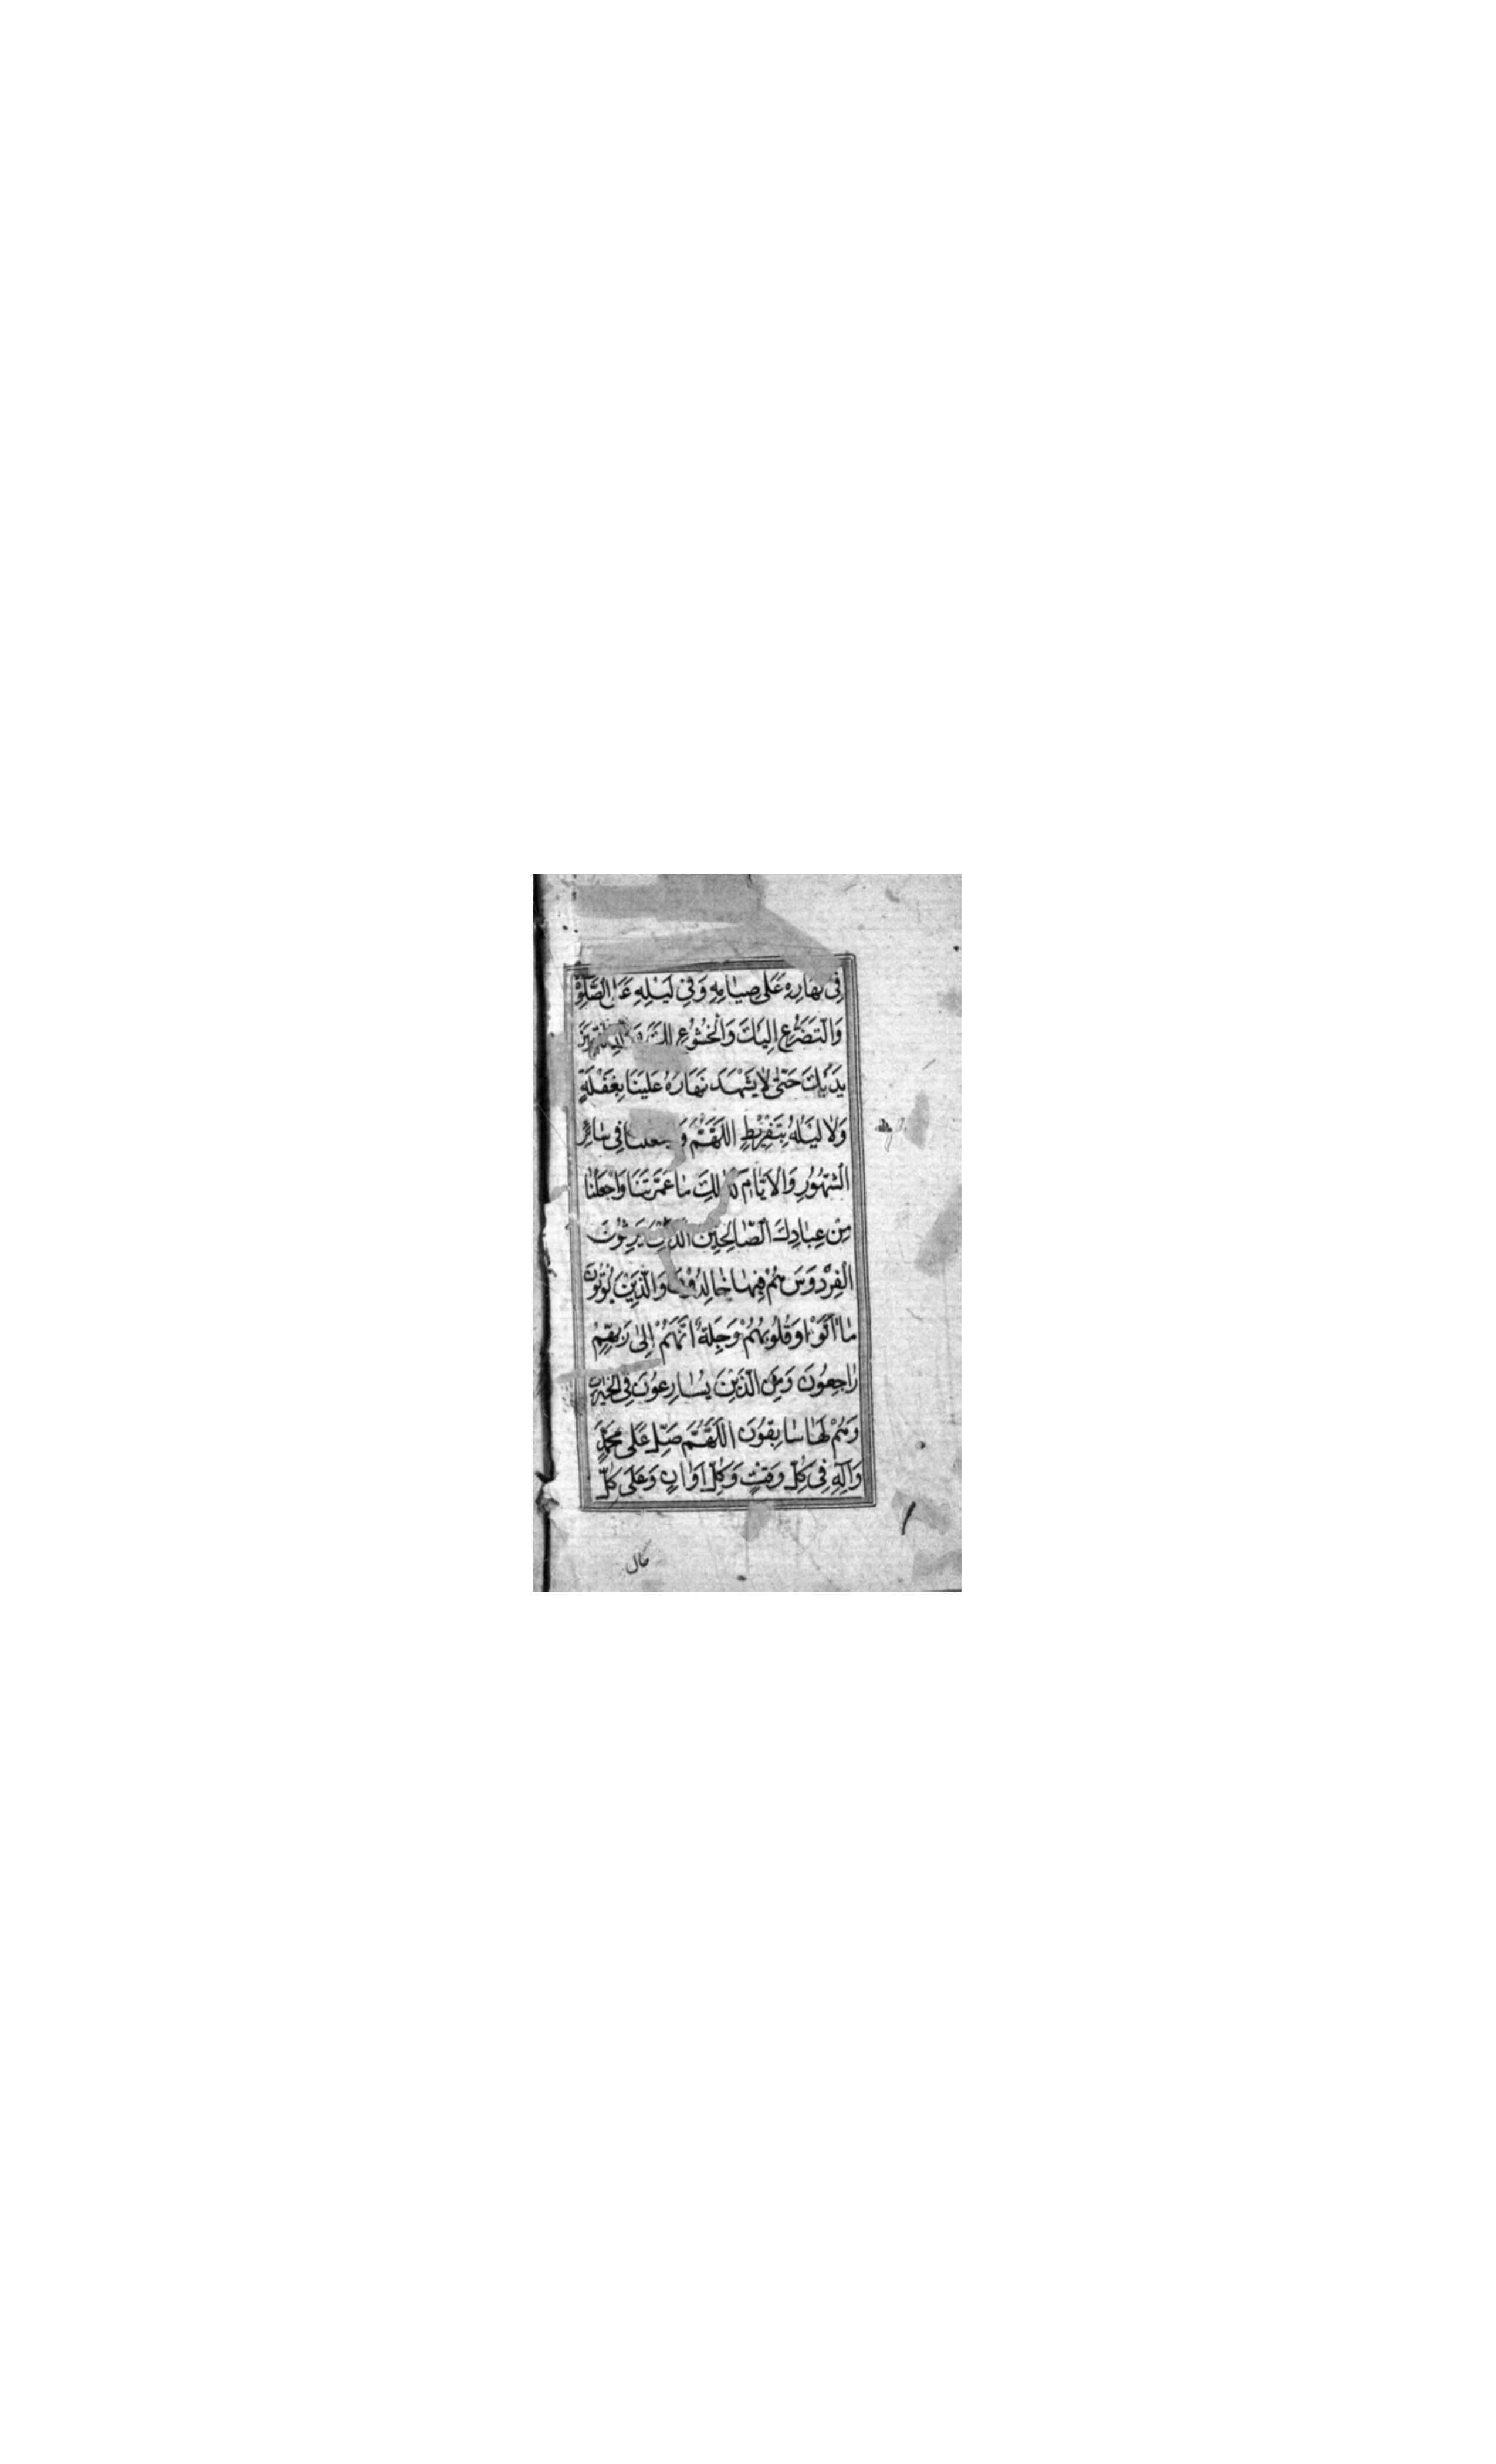 فِى نَهَارِهِ عَلٰى صِيَامِهِ وَفِى لَيْلِهِ عَلَى الصَّلٰوةِ
وَالتَّضَرُّعِ اِلَيْكَ وَالْخُشُوْعِ لَكَ وَالذِّلَّةِ بَيْنَ
يَدَيْكَ حَتّٰى لَا يَشْهَدَ نَهَارُهُ عَلَيْنَا بِغَفْلَةٍ
وَلَا لَيْلُهُ بِتَفْرِيْطٍ اللّٰهُمَّ وَاجْعَلْنَا فِى سَائِرِ
الشُّهُوْرِ وَالْاَيَّامِ كَذٰلِكَ مَا عَمَّرْتَنَا وَاجْعَلْنَا
مِنْ عِبَادِكَ الصَّالِحِيْنَ الَّذِيْنَ يَرِثُوْنَ
الْفِرْدَوْسَ هُمْ فِيْهَا خَالِدُوْنَ وَالَّذِيْنَ يُؤْتُوْنَ
مَا اٰتَوْا وَقُلُوْبُهُمْ وَجِلَةٌ اَنَّهُمْ اِلٰى رَبِّهِمْ
رَاجِعُوْنَ وَمِنَ الَّذِيْنَ يُسَارِعُوْنَ فِى الْخَيْرَاتِ
وَهُمْ لَهَا سَابِقُوْنَ اللّٰهُمَّ صَلِّ عَلٰى مُحَمَّدٍ
وَاٰلِهِ فِى كُلِّ وَقْتٍ وَكُلِّ اَوَانٍ وَعَلٰى كُلِّ
حال